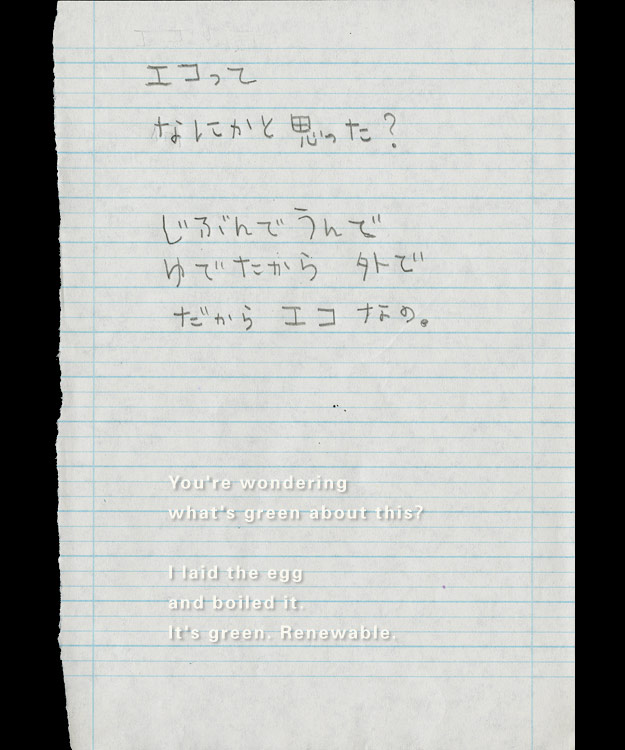 エコって
なにかと思った?
じぶんでうんで
ゆでたから 外で
だから エコ なの。
You're wondering
what's green about this?
I laid the egg
and boiled it.
It's green. Renewable.